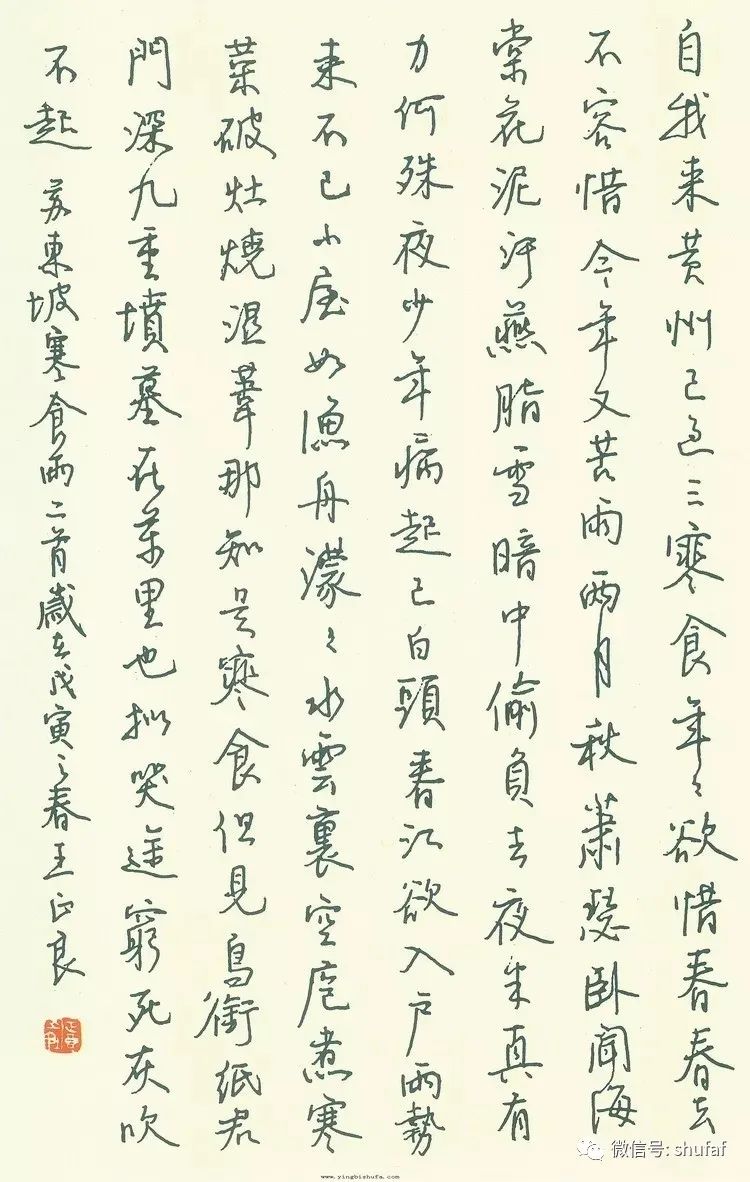 自我来黄州已过三寒食年々欲惜春春去
不容惜今年又苦雨两月秋蕭瑟卧聞海
棠花泥汙燕脂雪暗中偷負去夜半真有
力何殊夜少年病起已白頭春江欲入户雨勢
来不已小屋如漁舟濛々水雲裏空庖煮寒
菜破灶燒湿葦那知是寒食但見烏銜紙君
門深九重墳墓在萬里也拟哭途窮死灰吹
不起 苏東坡寒食雨二首歲在戊寅之春王正良
微信号: shufaf
www.yingbishufa.com